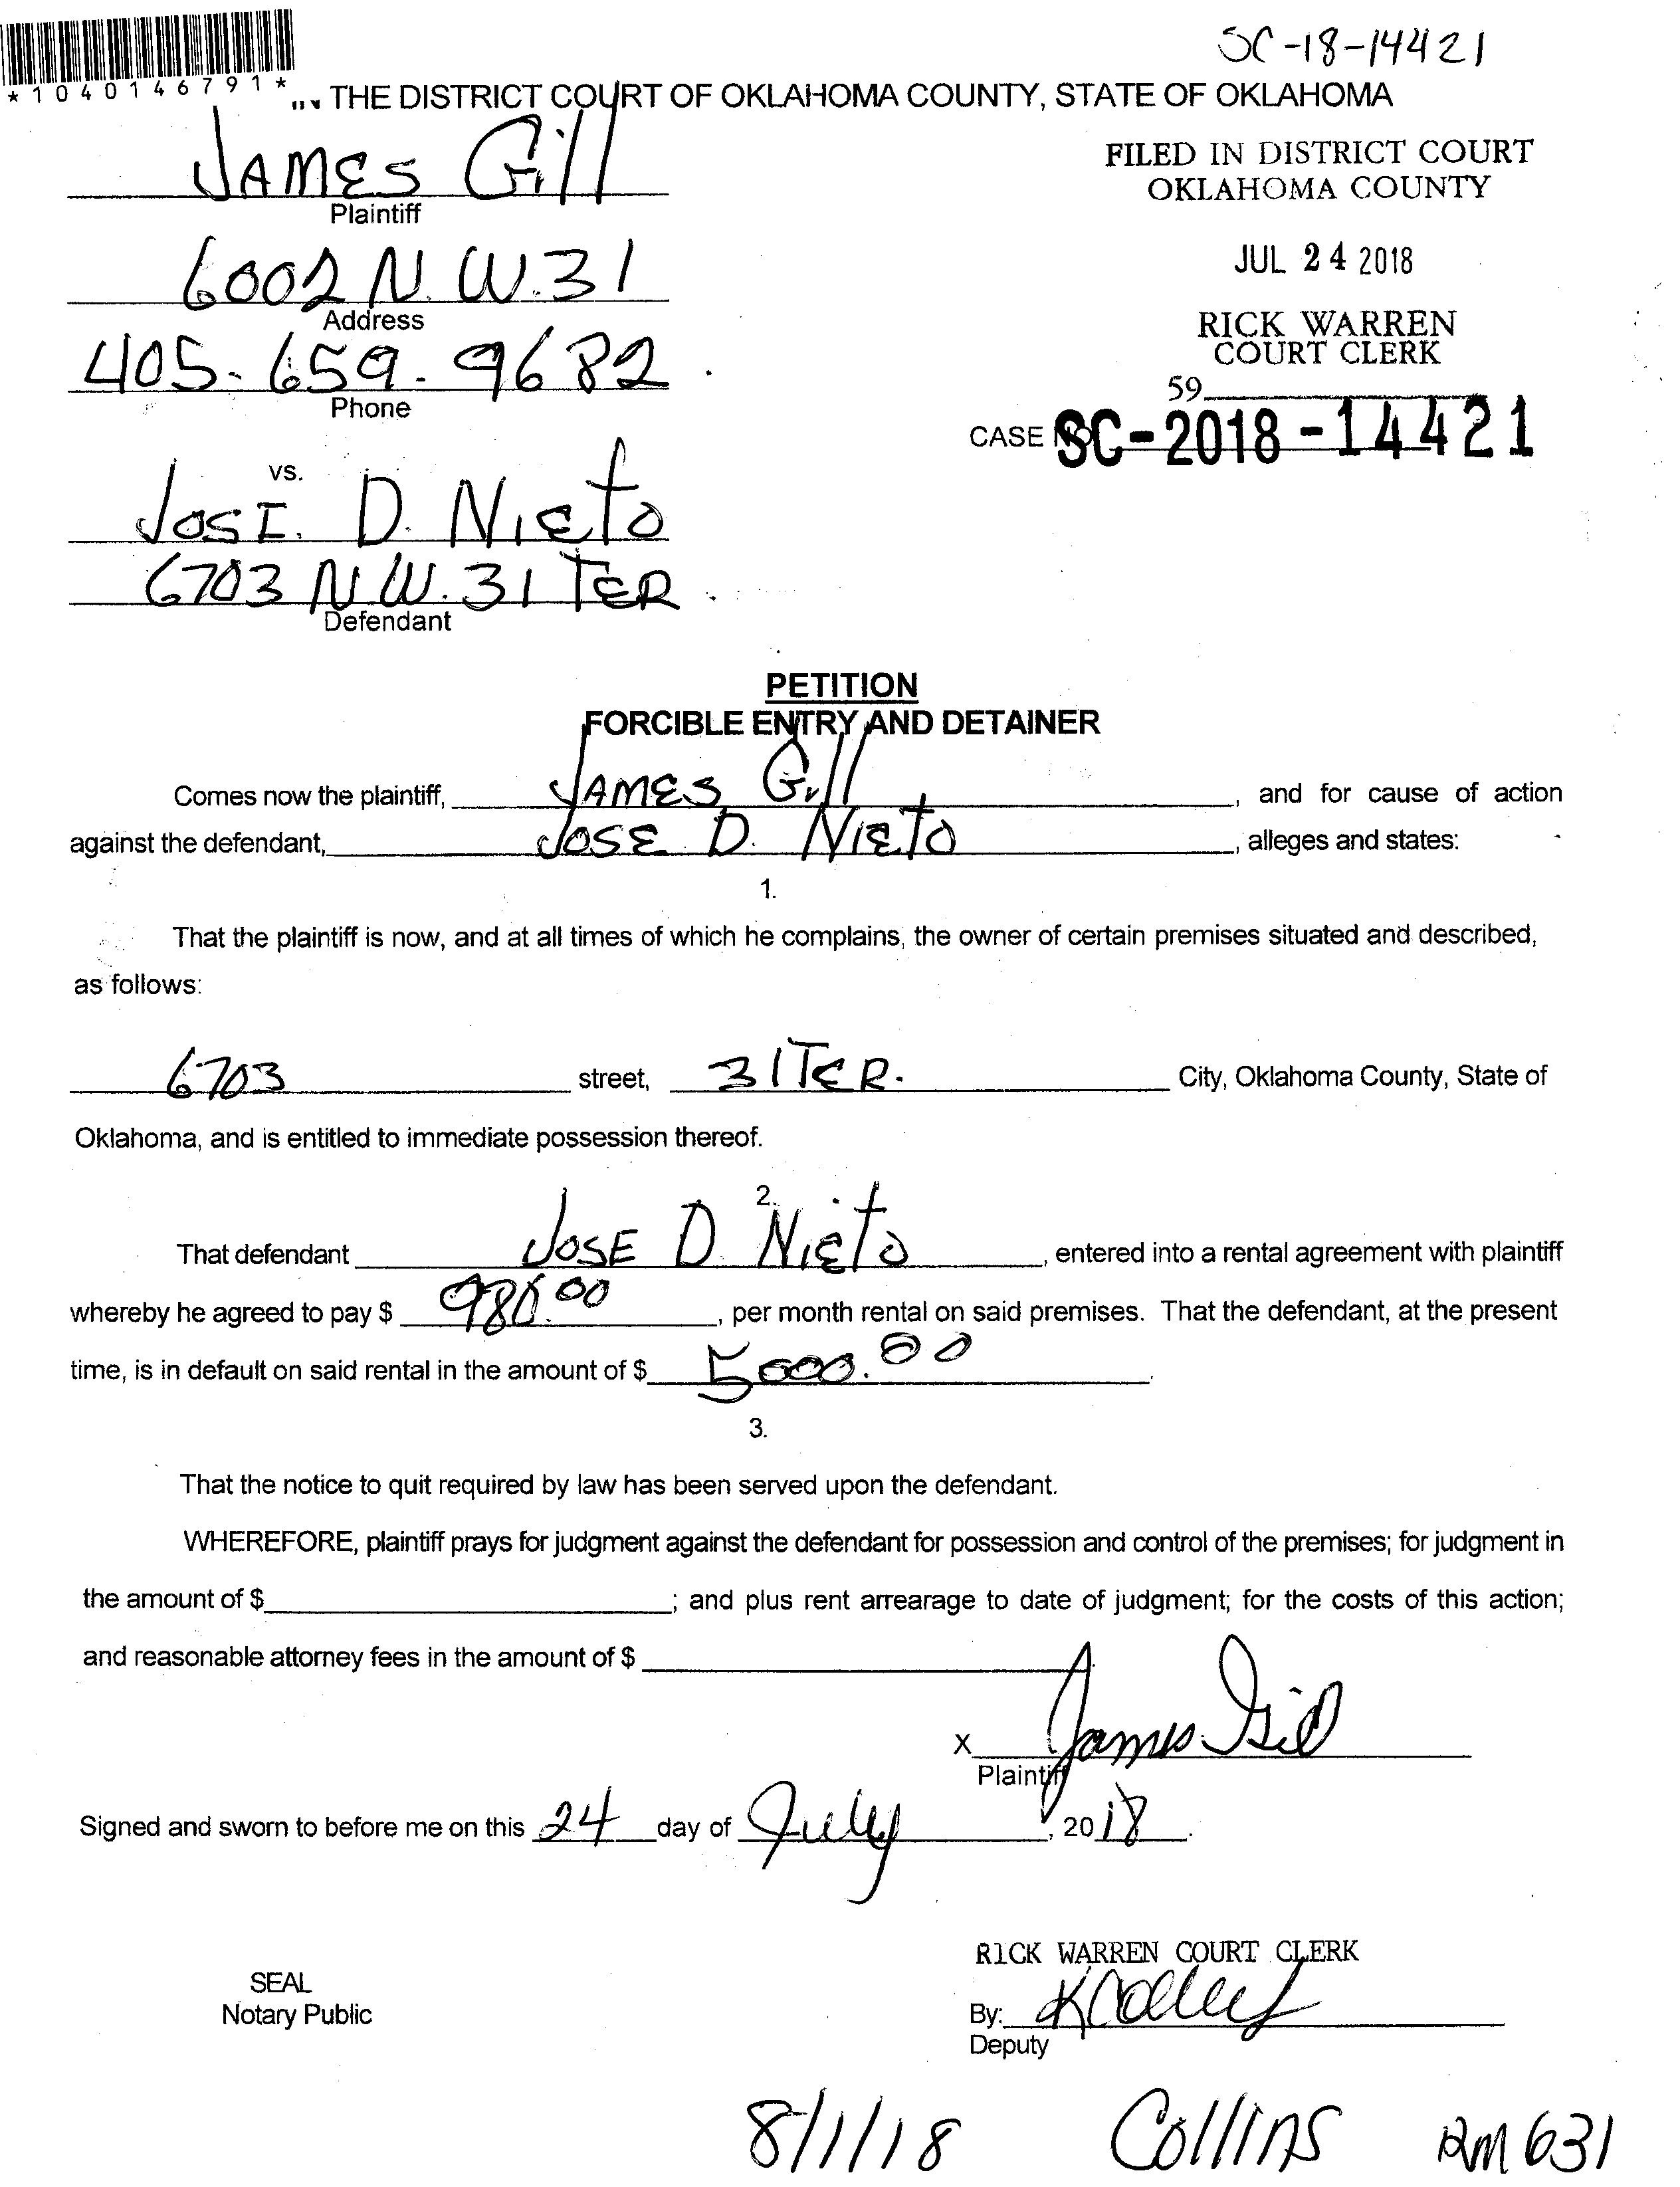 SC-18-14421
*1040146791*
THE DISTRICT COURT OF OKLAHOMA COUNTY, STATE OF OKLAHOMA
JAMES Gill
Plaintiff
FILED IN DISTRICT COURT
OKLAHOMA COUNTY
6002 N.W.31
Address
JUL 24 2018
405-659-9682
Phone
RICK WARREN
COURT CLERK
59
CASE NO SC-2018-14421
vs.
JOSE. D. NIETO
6703 N.W. 31 TER.
Defendant
PETITION
FORCIBLE ENTRY AND DETAINER
Comes now the plaintiff, JAMES Gill, and for cause of action
against the defendant, JOSE D. NIETO, alleges and states:
1.
That the plaintiff is now, and at all times of which he complains, the owner of certain premises situated and described,
as follows:
6703 street, 31 TER. City, Oklahoma County, State of
Oklahoma, and is entitled to immediate possession thereof.
2.
That defendant JOSE D. NIETO, entered into a rental agreement with plaintiff
whereby he agreed to pay $ , per month rental on said premises. That the defendant, at the present
time, is in default on said rental in the amount of $ 5000.00.
3.
That the notice to quit required by law has been served upon the defendant.
WHEREFORE, plaintiff prays for judgment against the defendant for possession and control of the premises; for judgment in
the amount of $; and plus rent arrearage to date of judgment; for the costs of this action;
and reasonable attorney fees in the amount of $.
X James Gill
Plaintiff
Signed and sworn to before me on this 24 day of July, 2018.
SEAL
Notary Public
RICK WARREN COURT CLERK
By:
Deputy
8/1/18 Collins RM 631